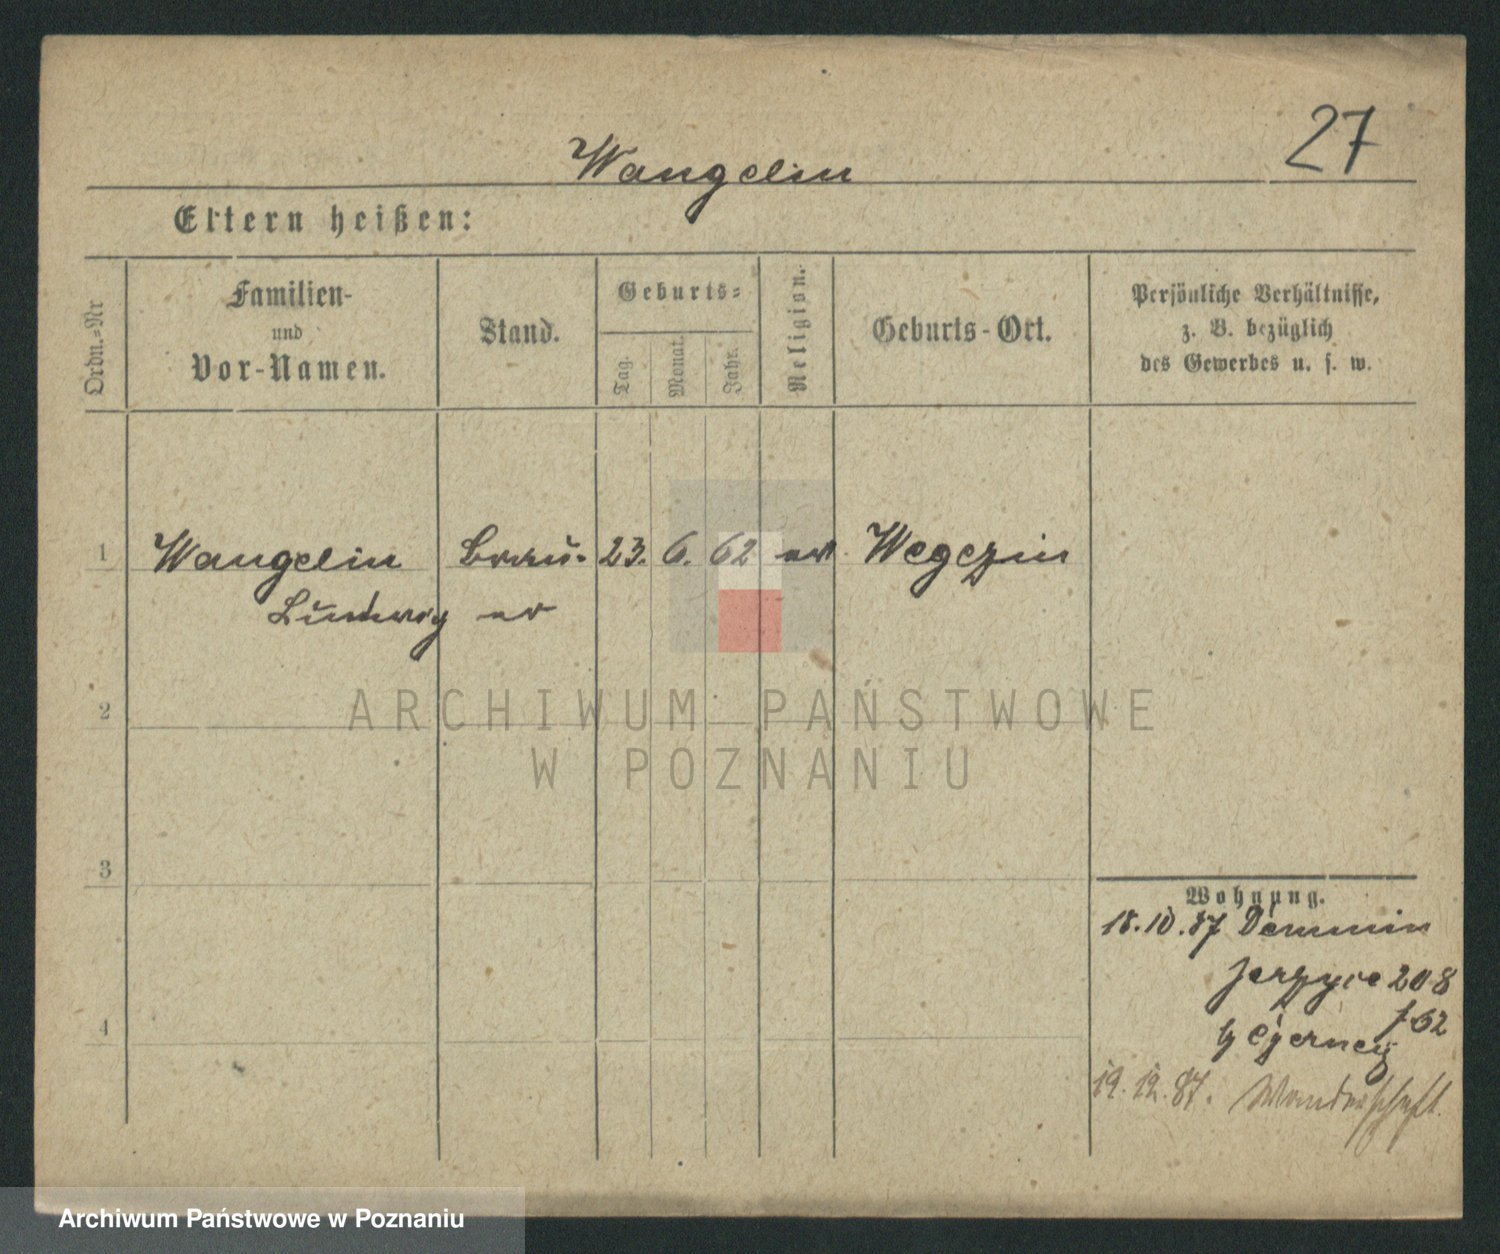 27
Wangelin
Eltern heißen:
Ordn.=Nr
Familien-
und
Vor-Namen.
Stand.
Geburts=
Tag.
Monat.
Jahr.
Religion.
Geburts-Ort.
Persönliche Verhältnisse,
z. B. bezüglich
des Gewerbes u. s. w.
1 Wangelin Brau- 23. 6. 62 Wegezin
Ludwig er
2
ARCHIWUM PAŃSTWOWE
W POZNANIU
3
4
Wohnung.
18.10.87 Demmin
Jerzyce 208
62
19.12.87. Wanderschaft.
Archiwum Państwowe w Poznaniu